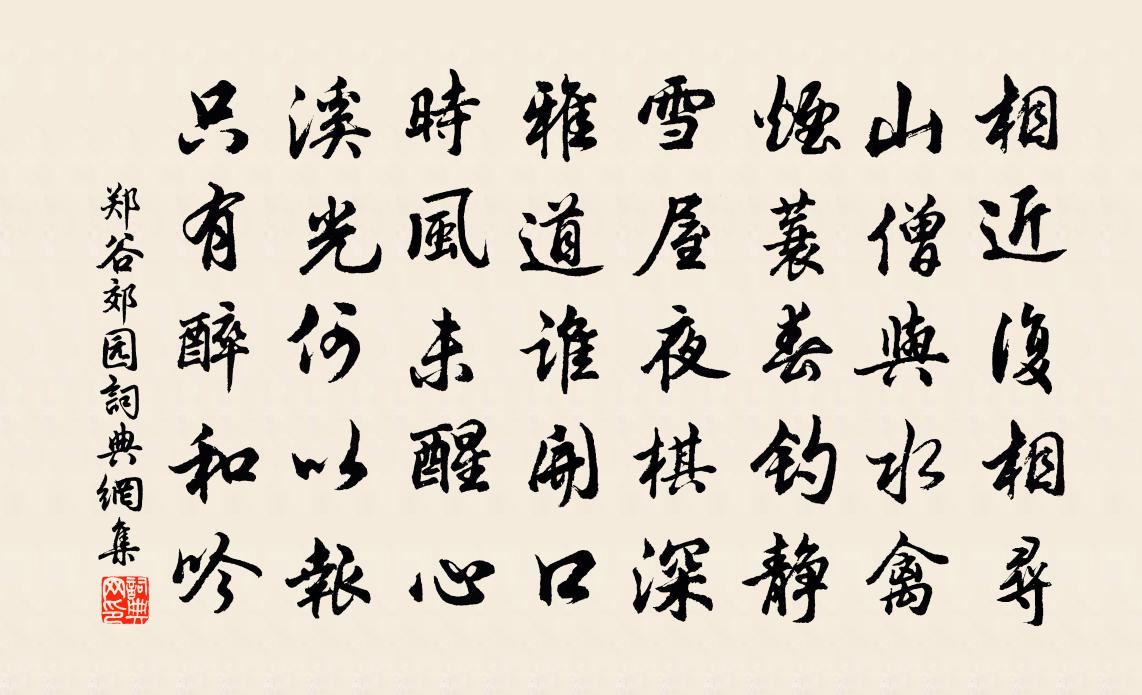 相近復相尋
山僧與水禽
煙蓑春釣靜
雪屋夜棋深
雅道誰開口
時風未醒心
溪光何以報
只有醉和吟
郑谷郊园詞典網集
詞典网印